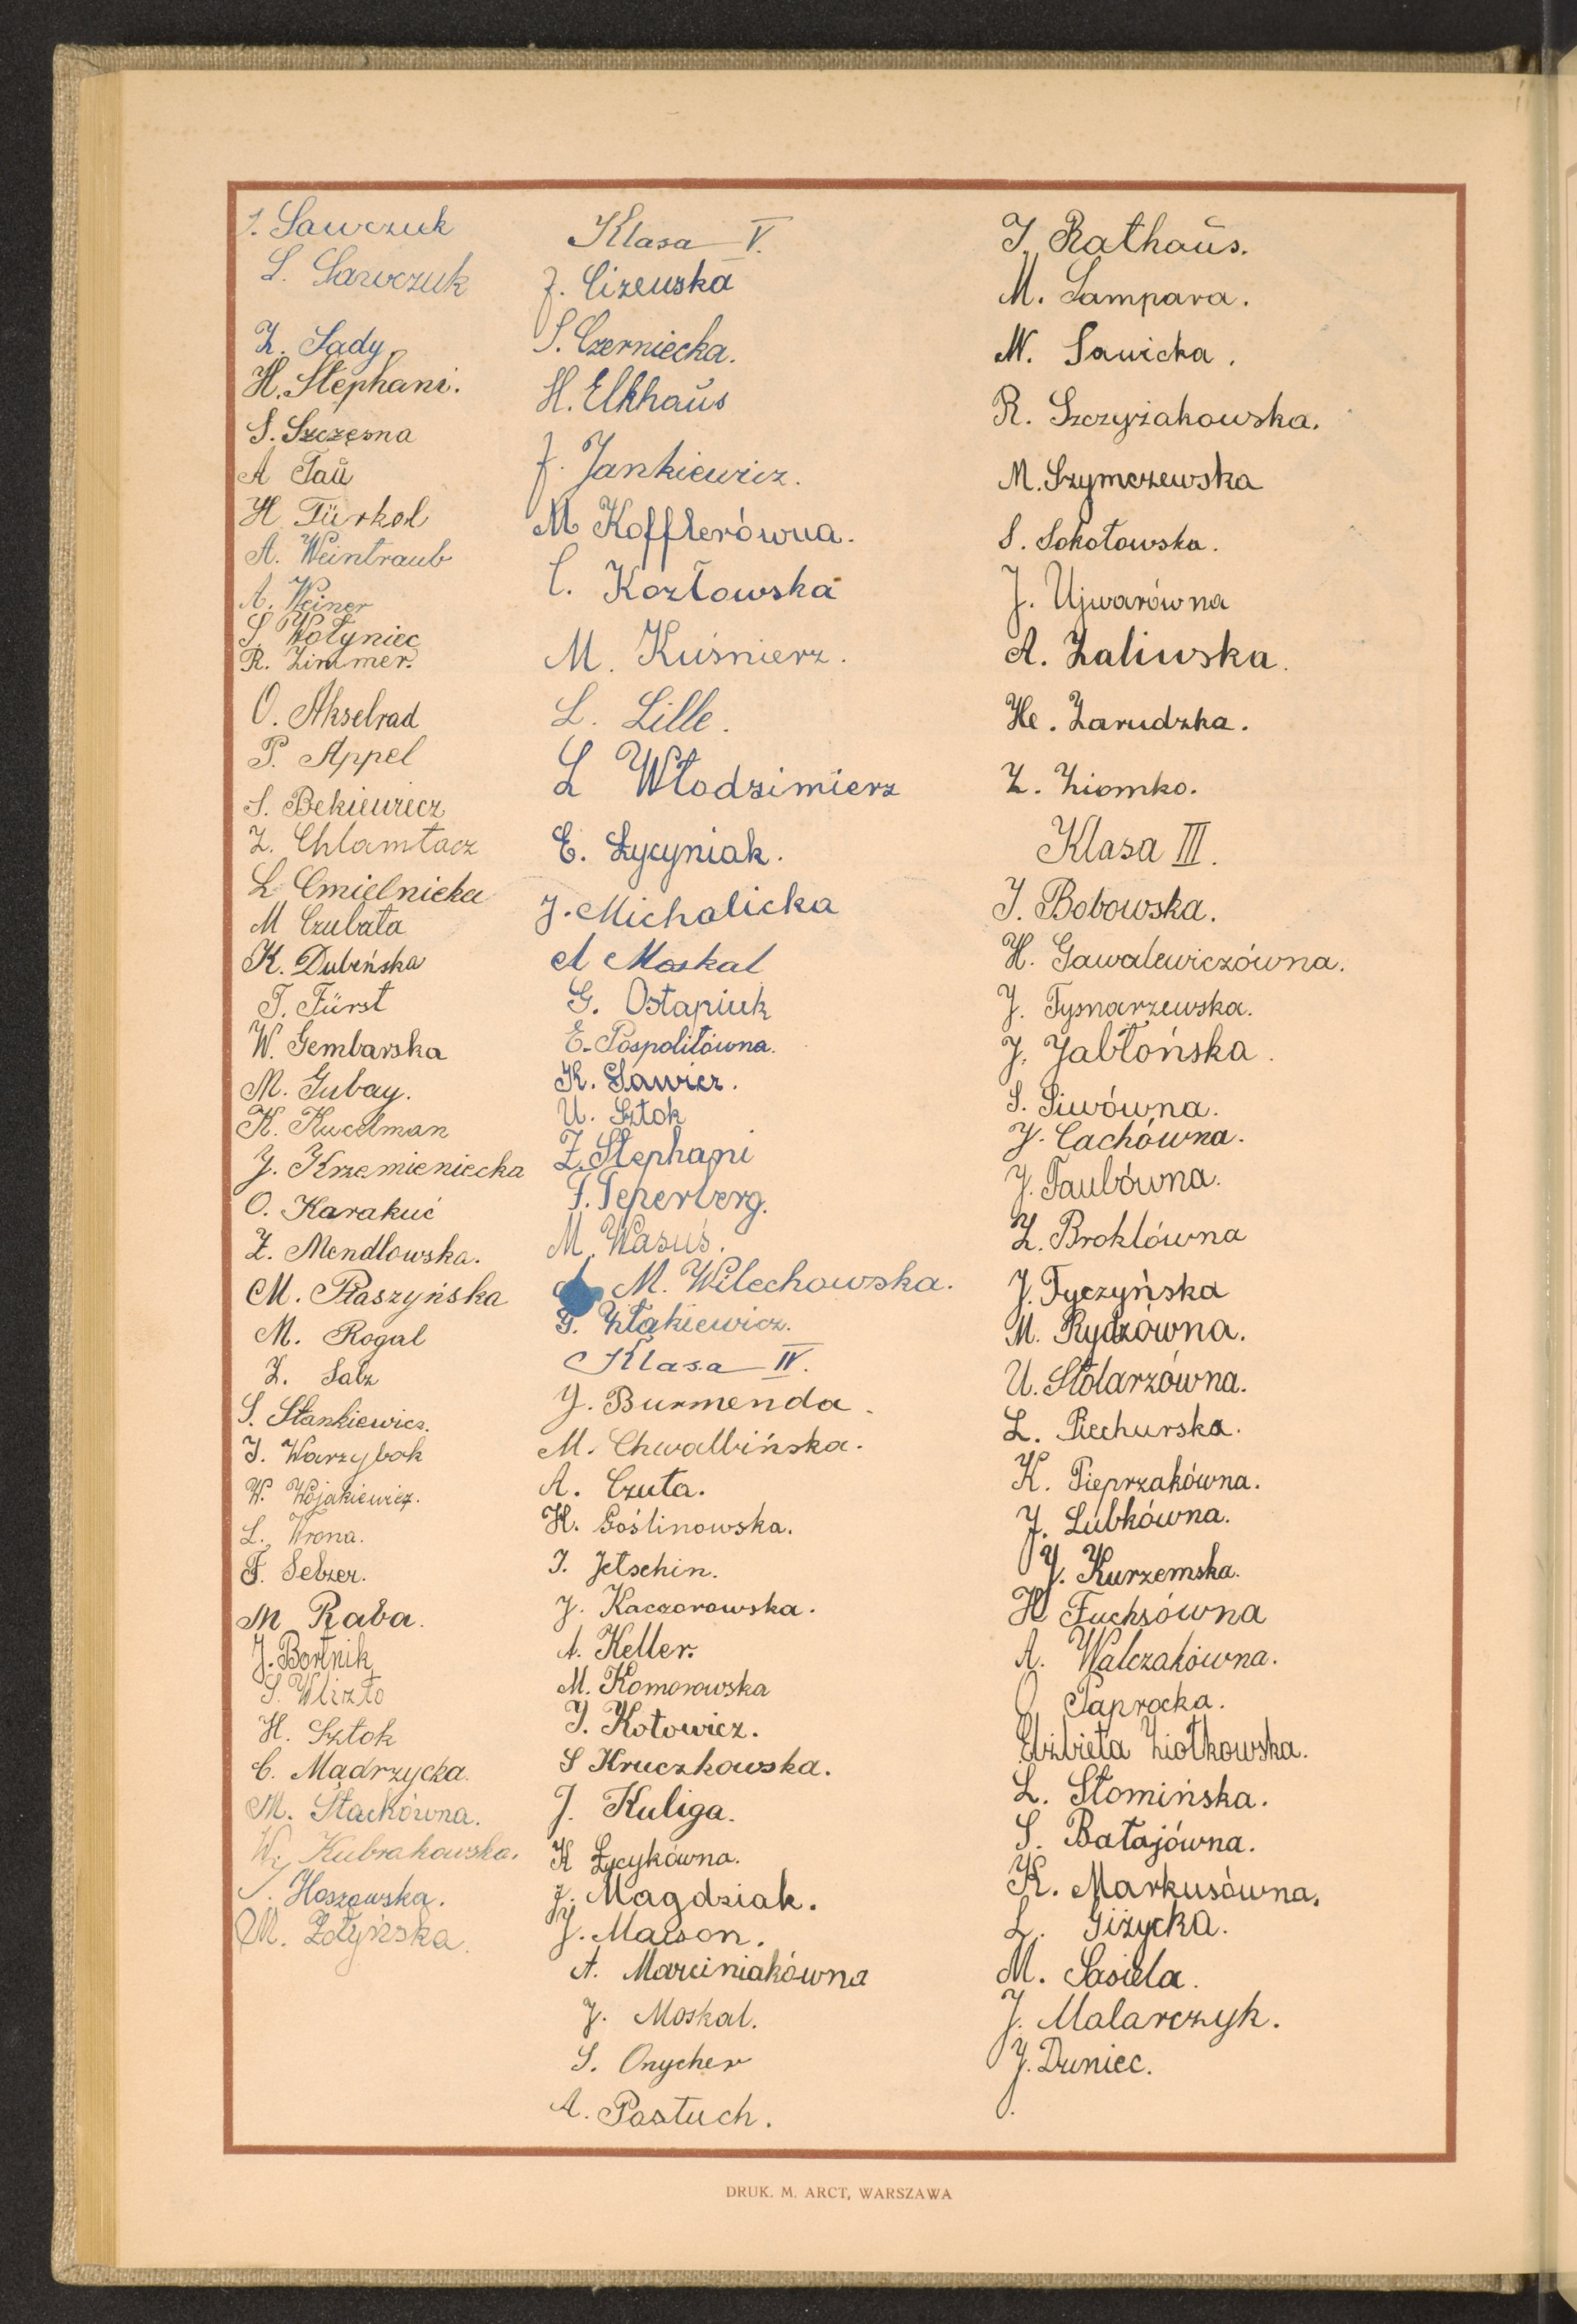 S. Sawczuk
S. Sawczuk
Z. Sady
H. Stephani.
S. Szczęsna
A Taŭ
H Türkel
A. Weintraub
A. Weiner
S. Wołyniec
R. Zimmer.
O. Akselrad
P. Appel
S. Bekiewicz
Z. Chlamtacz
L Cmielnicka
M Czubata
K. Dubeńska
T. Fürst
W. Gembarska
M. Gubay.
K. Kucelman
J. Krzemieniecka
O. Karakuć
Z. Mendlowska.
M. Płaszyńska
M. Rogal
Z. Salz
S. Stankiewicz.
J. Warzybok
W. Wojakiewicz.
L. Wrona.
F. Selzer.
M Raba.
J. Bortnik
S. Wlizło
H. Sztok
C. Mądrzycka.
M. Stackówna.
W. Kubrakowska.
J. Hoszowska.
M. Żołyńska.
Klasa V.
J. Cizewska
S. Czerniecka.
H. Elkhaŭs
J. Jankiewicz.
M Kofflerówna.
C. Kozłowska
M. Kuśnierz.
L. Lille.
L Włodzimierz
E. Łycyniak.
J. Michalicka
A Moskal
G. Ostapiuk
E. Pospolitówna.
K. Sawicz.
U. Sztok
Z. Stephani
F. Teperberg.
M. Wasuś.
M. Wilechowska.
G. Złakiewicz.
Klasa IV.
J. Burmenda.
M. Chwalbińska.
A. Czuta.
H. Goślinowska.
J. Jetschin.
J. Kaczorowska.
A. Keller.
M. Komorowska
J. Kotowicz.
S Kruczkowska.
J. Kuliga.
K Łycykówna.
J. Magdziak.
J. Maison.
A. Marciniakówna
J. Moskal.
S. Onycher
A. Pastuch.
J. Rathaŭs.
M. Sampara.
W. Sawicka.
R. Szczyżakowska.
M. Szymczewska
S. Sokołowska.
J. Ujwarówna
A. Zaliwska.
He. Zarudzka.
Z. Ziomko.
Klasa III.
J. Bobowska.
H. Gawalewiczówna.
J. Tysnarzewska.
J. Jabłońska.
S. Siwówna.
J. Cachówna.
J. Taubówna.
Z. Broklówna
J. Tyczyńska
M. Rydzówna.
U. Stolarzówna.
L. Piechurska.
K. Pieprzakówna.
J. Lubkówna.
J. Kurzemska.
H Fuchsówna
A. Walczakówna.
O Paprocka.
Elżbieta Ziołkowska.
L. Słomińska.
S. Batajówna.
K. Markusówna.
L. Giżycka.
M. Sasiela.
J. Malarczyk.
J. Duniec.
DRUK. M. ARCT, WARSZAWA